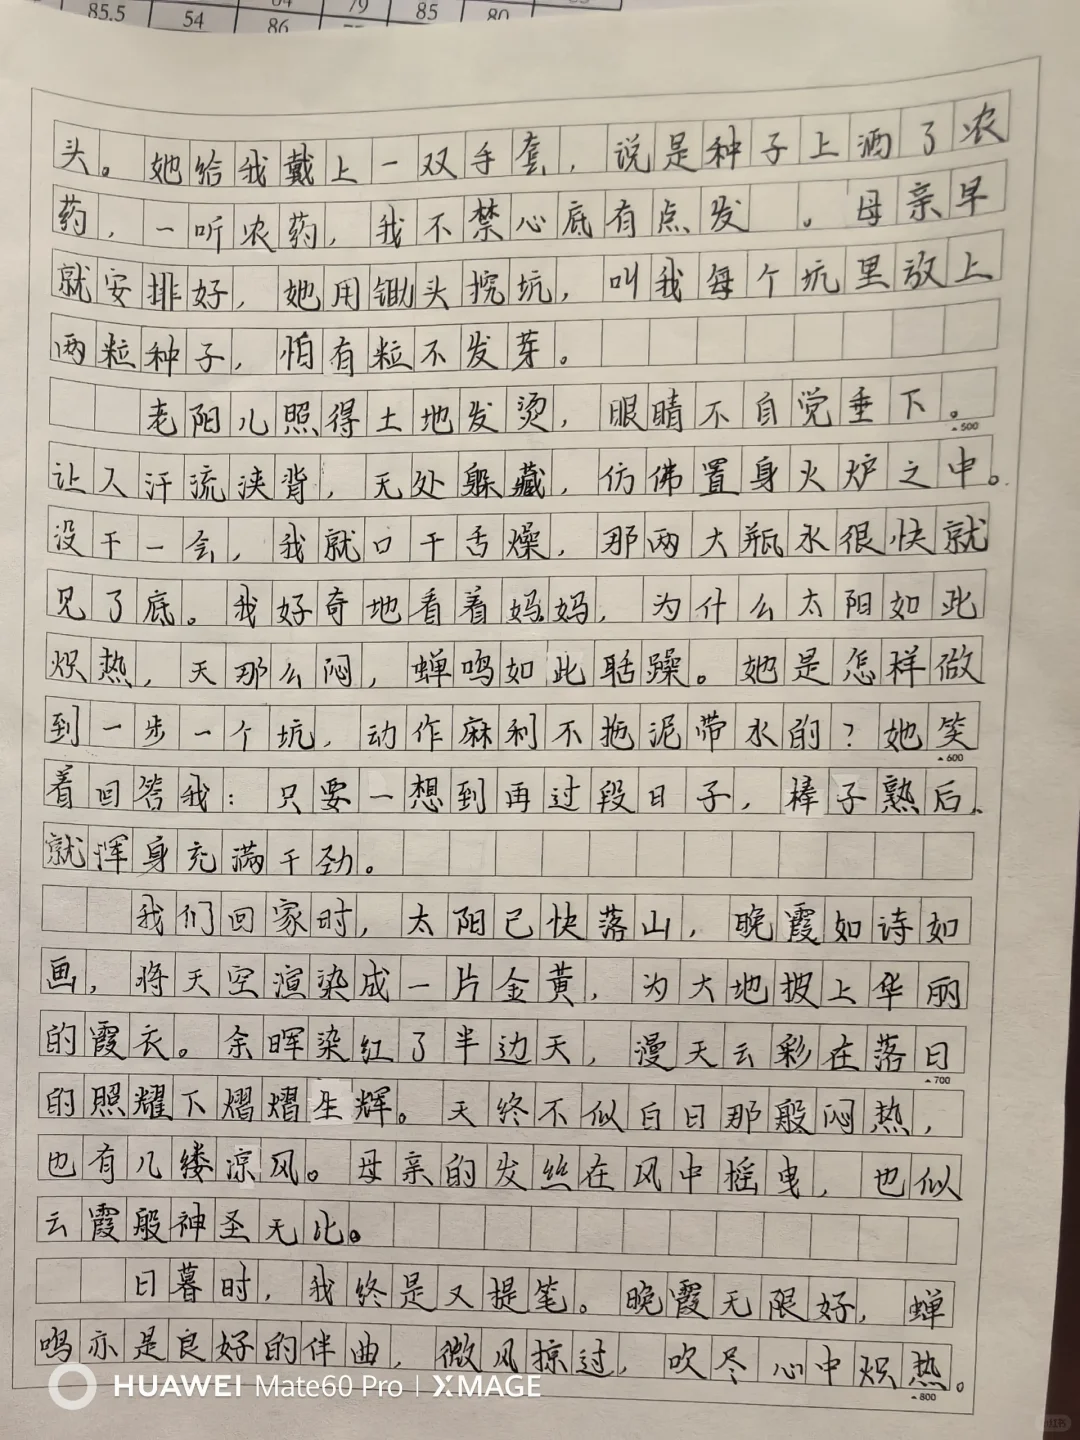 85.5 54 64 79 85 80 85
86
头。她给我戴上一双手套，说是种子上洒了农
药，一听农药，我不禁心底有点发 。母亲早
就安排好，她用锄头挖坑，叫我每个坑里放上
两粒种子，怕有粒不发芽。
老阳儿照得土地发烫，眼睛不自觉垂下。
▲500
让人汗流浃背，无处躲藏，仿佛置身火炉之中。
没干一会，我就口干舌燥，那两大瓶水很快就
见了底。我好奇地看着妈妈，为什么太阳如此
炽热，天那么闷，蝉鸣如此聒躁。她是怎样做
到一步一个坑，动作麻利不拖泥带水的？她笑
▲600
着回答我：只要一想到再过段日子，棒子熟后、
就浑身充满干劲。
我们回家时，太阳已快落山，晚霞如诗如
画，将天空渲染成一片金黄，为大地披上华丽
的霞衣。余晖染红了半边天，漫天云彩在落日
▲700
的照耀下熠熠生辉。天终不似白日那般闷热，
也有几缕凉风。母亲的发丝在风中摇曳，也似
云霞般神圣无比。
日暮时，我终是又提笔。晚霞无限好，蝉
鸣亦是良好的伴曲，微风掠过，吹尽心中炽热。
▲800
HUAWEI Mate60 Pro | XMAGE